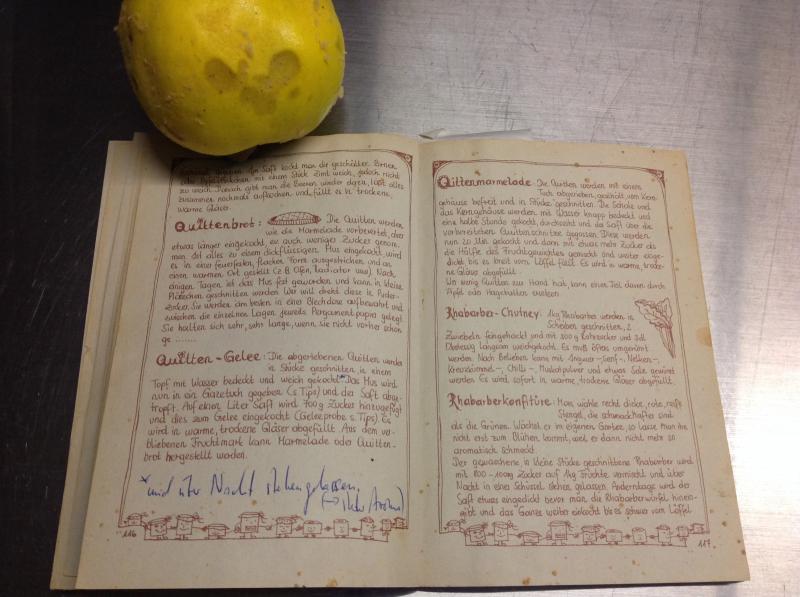 Im Saft kocht man die geschälten Birnen
mit einem Stück Zimt weich, jedoch nicht
zu weich. Danach gibt man die Beeren wieder dazu, läßt alles
zusammen nochmals aufkochen und füllt es in trockene,
warme Gläser.
Quittenbrot: Die Quitten werden
wie die Marmelade vorbereitet, aber
etwas länger eingekocht, ev. auch weniger Zucker genom.
men. Ist alles zu einem dickflüssigen Mus eingekocht, wird
es in einer feuerfesten, flachen Form ausgestrichen und an
einen warmen Ort gestellt (z.B. Ofen, Radiator usw.). Nach
einigen Tagen ist das Mus fest geworden und kann in kleine
Plätzchen geschnitten werden. Wer will dreht diese in Puder-
zucker. Sie werden am besten in einer Blechdose aufbewahrt und
zwischen die einzelnen Lagen jeweils Pergamentpapier gelegt.
Sie halten sich sehr, sehr lange, wenn sie nicht vorher schon
ge ........
Quitten-Gelee: Die abgeriebenen Quitten werden
in Stücke geschnitten, in einem
Topf mit Wasser bedeckt und weich gekocht.* Das Mus wird
nun in ein Gazetuch gegeben (s. Tips) und der Saft abge-
tropft. Auf einen Liter Saft wird 700g Zucker hinzugefügt
und dies zum Gelee eingekocht (Geleeprobe s. Tips). Es
wird in warme, trockene Gläser abgefüllt. Aus dem ver-
bliebenen Fruchtmark kann Marmelade oder Quitten-
brot hergestellt werden.
* und über Nacht stehen gelassen
116
Qittenmarmelade: Die Quitten werden mit einem
Tuch abgerieben, geschält, vom Kern-
gehäuse befreit und in Stücke geschnitten. Die Schale und
das Kerngehäuse werden mit Wasser knapp bedeckt und
eine halbe Stunde gekocht, durchgesiebt und der Saft über die
vorbereiteten Quittenschnitze gegossen. Diese werden
nun 20 Min. gekocht und dann mit etwas mehr Zucker als
die Hälfte des Fruchtgewichtes gemischt und weiter einge-
dickt bis es breit vom Löffel fällt. Es wird in warme, trocke-
ne Gläser abgefüllt.
Wer wenig Quitten zur Hand hat, kann einen Teil davon durch
Äpfel oder Hagebutten ersetzen.
Rhabarber-Chutney: 1kg Rhabarber werden in
Scheiben geschnitten, 2
Zwiebeln feingehackt und mit 500 g Rohrzucker und 3dl
Obstessig langsam weichgekocht. Es muß öfters umgerührt
werden. Nach Belieben kann mit Ingwer-, Senf-, Nelken-,
Kreuzkümmel-, Chilli-, Muskatpulver und etwas Salz gewürzt
werden. Es wird sofort in warme, trockene Gläser abgefüllt.
Rhabarberkonfitüre: Man wähle recht dicke, rote, reife
Stengel, die schmackhafter sind
als die Grünen. Wächst er im eigenen Garten, so lasse man ihn
nicht erst zum Blühen kommen, weil er dann nicht mehr so
aromatisch schmeckt.
Der gewaschene, in kleine Stücke geschnittene Rhabarber wird
mit 800-1000g Zucker auf 1kg Früchte vermischt und über
Nacht in einer Schüssel stehen gelassen. Anderntags wird der
Saft etwas eingedickt bevor man die Rhabarberwürfel hinein-
gibt und das Ganze weiter einkocht bis es schwer vom Löffel
117